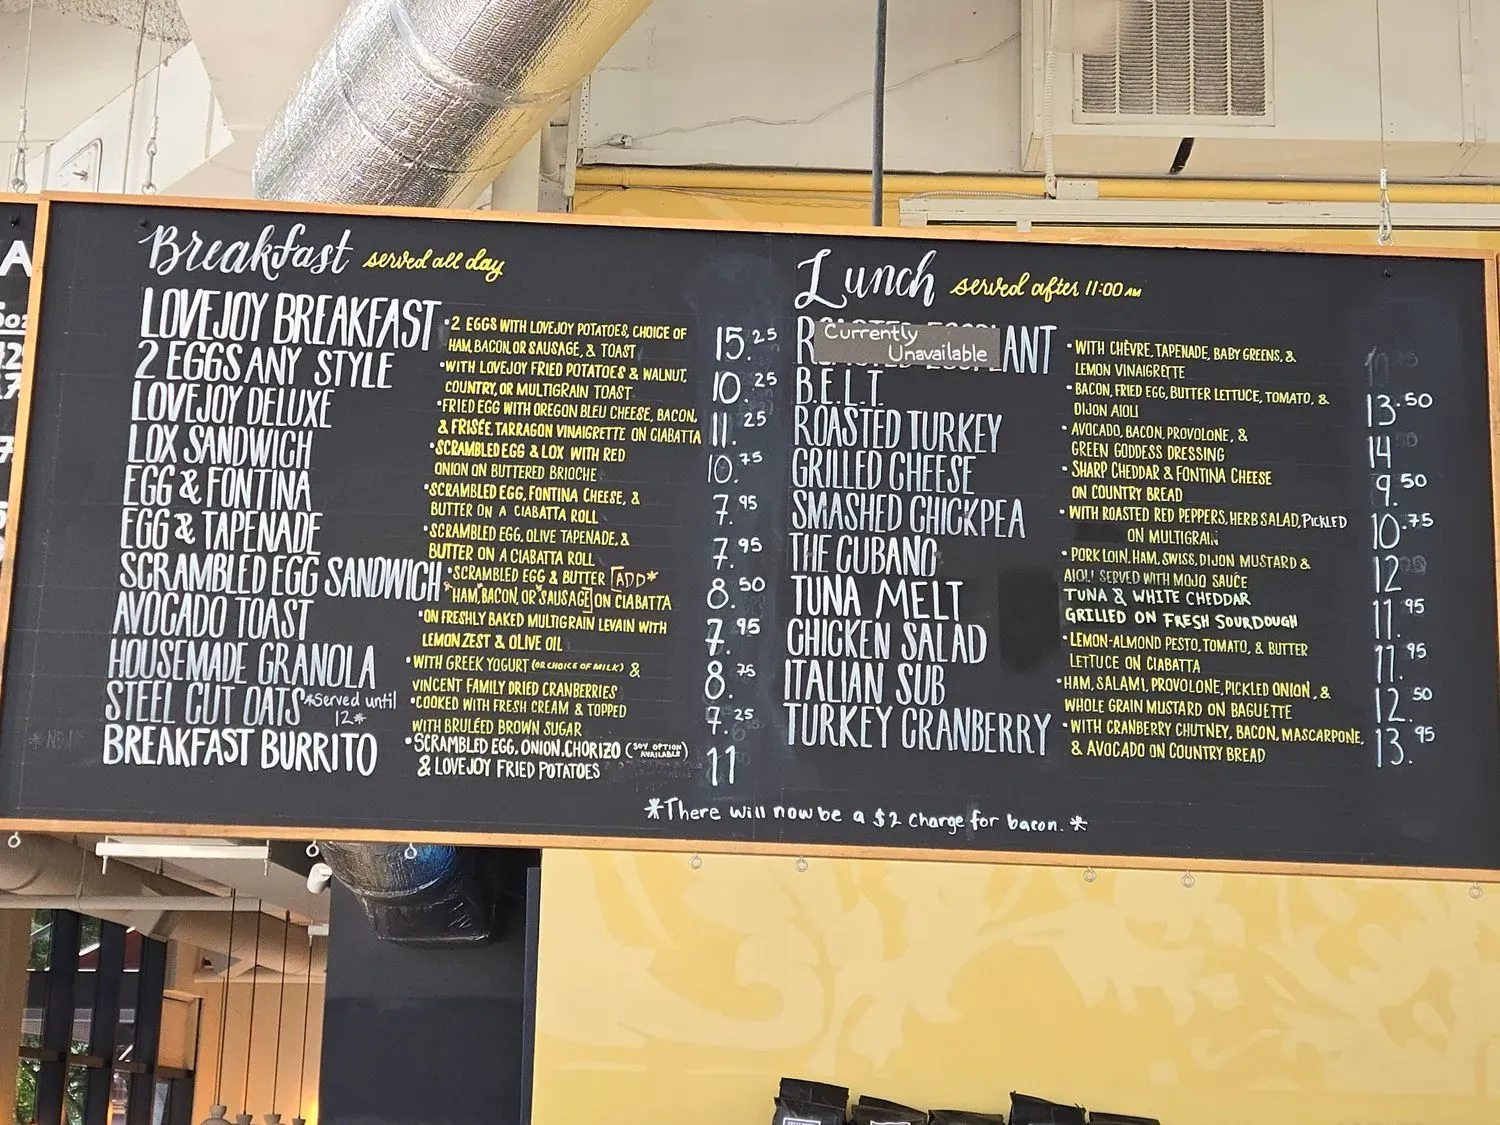 Breakfast served all day
LOVEJOY BREAKFAST
• 2 EGGS WITH LOVEJOY POTATOES, CHOICE OF
HAM, BACON, OR SAUSAGE, & TOAST
15.25
2 EGGS ANY STYLE
• WITH LOVEJOY FRIED POTATOES & WALNUT,
COUNTRY, OR MULTIGRAIN TOAST
10.25
LOVEJOY DELUXE
• FRIED EGG WITH OREGON BLEU CHEESE, BACON,
& FRISÉE, TARRAGON VINAIGRETTE ON CIABATTA
11.25
LOX SANDWICH
• SCRAMBLED EGG & LOX WITH RED
ONION ON BUTTERED BRIOCHE
10.75
EGG & FONTINA
• SCRAMBLED EGG, FONTINA CHEESE, &
BUTTER ON A CIABATTA ROLL
7.95
EGG & TAPENADE
• SCRAMBLED EGG, OLIVE TAPENADE, &
BUTTER ON A CIABATTA ROLL
7.95
SCRAMBLED EGG SANDWICH
• SCRAMBLED EGG & BUTTER [ADD*
*HAM, BACON, OR SAUSAGE] ON CIABATTA
8.50
AVOCADO TOAST
• ON FRESHLY BAKED MULTIGRAIN LEVAIN WITH
LEMON ZEST & OLIVE OIL
7.95
HOUSEMADE GRANOLA
• WITH GREEK YOGURT (OR CHOICE OF MILK) &
VINCENT FAMILY DRIED CRANBERRIES
8.75
STEEL CUT OATS *Served until
12*
• COOKED WITH FRESH CREAM & TOPPED
WITH BRULÉED BROWN SUGAR
7.25
* NEW
BREAKFAST BURRITO
• SCRAMBLED EGG, ONION, CHORIZO (SOY OPTION AVAILABLE)
& LOVEJOY FRIED POTATOES
11
Lunch served after 11:00 AM
ROASTED EGGPLANT
Currently
Unavailable
• WITH CHÈVRE, TAPENADE, BABY GREENS, &
LEMON VINAIGRETTE
B.E.L.T.
• BACON, FRIED EGG, BUTTER LETTUCE, TOMATO, &
DIJON AIOLI
13.50
ROASTED TURKEY
• AVOCADO, BACON, PROVOLONE, &
GREEN GODDESS DRESSING
14
GRILLED CHEESE
• SHARP CHEDDAR & FONTINA CHEESE
ON COUNTRY BREAD
9.50
SMASHED CHICKPEA
• WITH ROASTED RED PEPPERS, HERB SALAD, PICKLED
ON MULTIGRAIN
10.75
THE CUBANO
• PORK LOIN, HAM, SWISS, DIJON MUSTARD &
AIOLI SERVED WITH MOJO SAUCE
12
TUNA MELT
TUNA & WHITE CHEDDAR
GRILLED ON FRESH SOURDOUGH
11.95
CHICKEN SALAD
• LEMON-ALMOND PESTO, TOMATO, & BUTTER
LETTUCE ON CIABATTA
11.95
ITALIAN SUB
• HAM, SALAMI, PROVOLONE, PICKLED ONION, &
WHOLE GRAIN MUSTARD ON BAGUETTE
12.50
TURKEY CRANBERRY
• WITH CRANBERRY CHUTNEY, BACON, MASCARPONE,
& AVOCADO ON COUNTRY BREAD
13.95
*There will now be a $2 charge for bacon.*